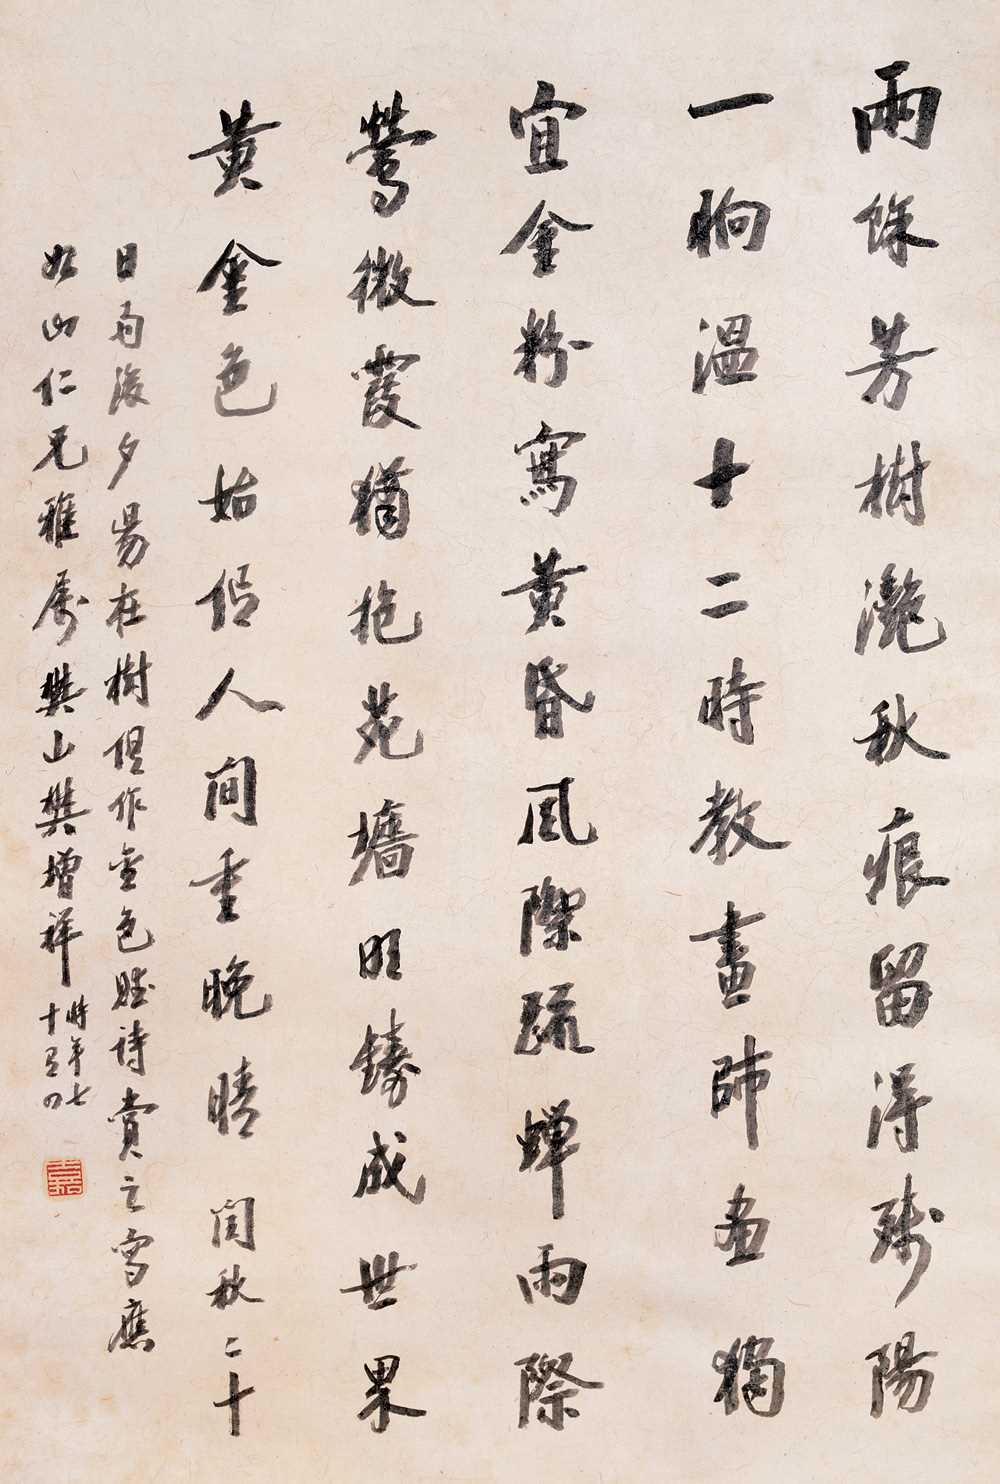 雨餘芳樹灔秋痕留得殘陽
一晌温十二時教畫師畫獨
宜金粉寫黄昏風際疏蟬雨際
鶯微霞猶抱苑墻明鑄成世果
黄金色始信人間重晚晴 閏秋二十
日雨後夕陽在樹俱作金色賦詩賞之寫應
如山仁兄雅屬樊山樊增祥時年七
十有四